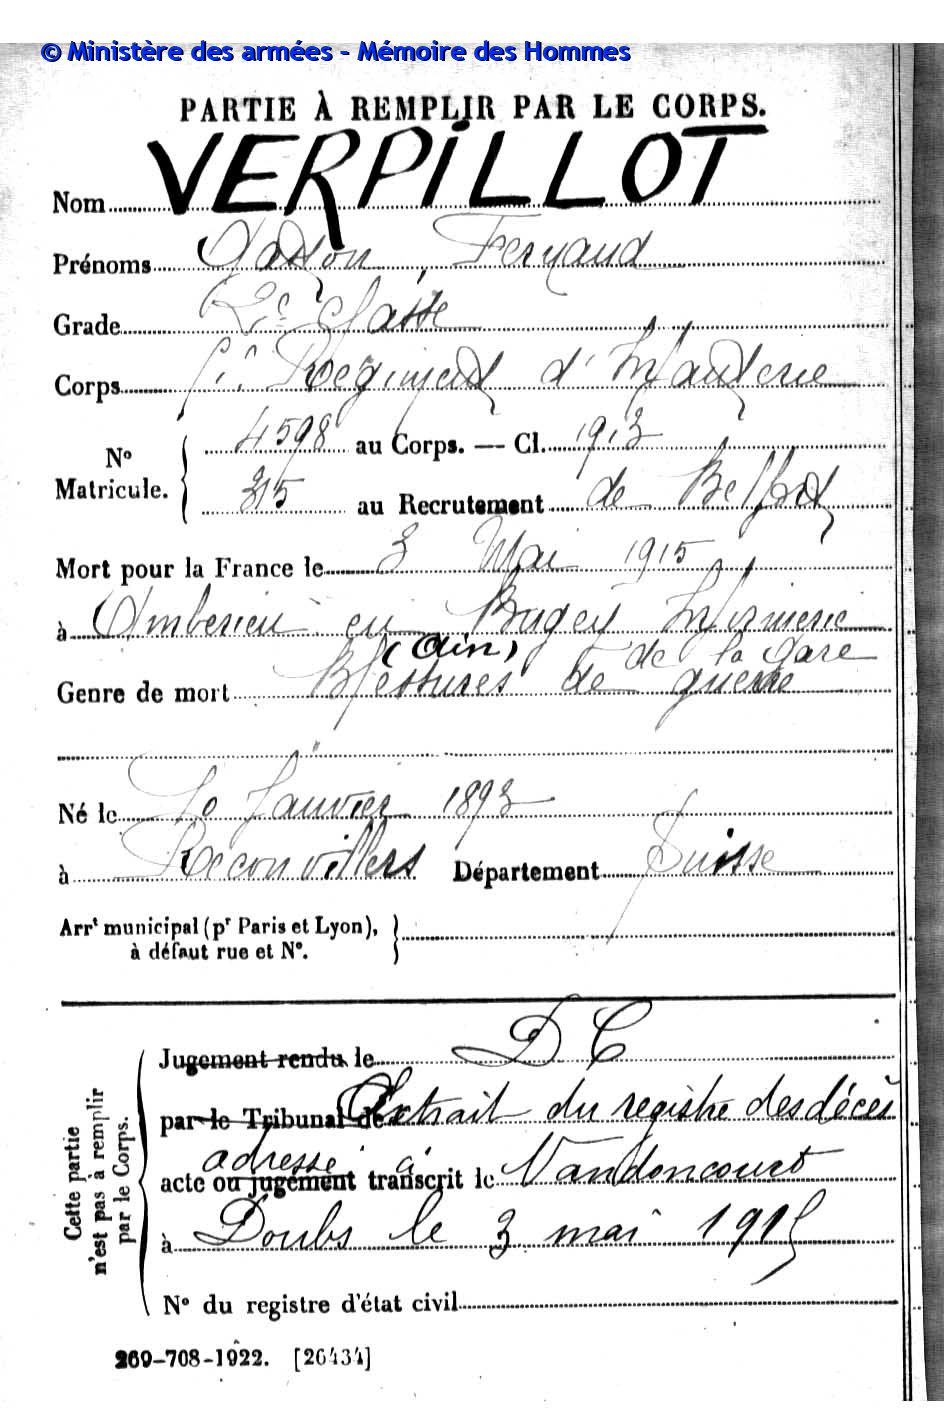 © Ministère des armées - Mémoire des Hommes
PARTIE À REMPLIR PAR LE CORPS.
Nom VERPILLOT
Prénoms Gaston, Fernand
Grade 2e Classe
Corps Régiment d'Infanterie
4598 au Corps. — Cl. 1913
No
Matricule.
315 au Recrutement de Belfort
Mort pour la France le 3 Mai 1915
à Ambérieu en Bugey Infirmerie
(Ain) de la gare
Genre de mort Blessures de guerre
Né le Janvier 1893
à Reconvillers Département Suisse
Arrt municipal (pr Paris et Lyon),
à défaut rue et No.
Cette partie
n'est pas à remplir
par le Corps.
Jugement rendu le DC
par le Tribunal de Extrait du registre des décès
adressé à
acte ou jugement transcrit le Vandoncourt
à Doubs le 3 mai 1915
No du registre d'état civil
269-708-1922. [26434]